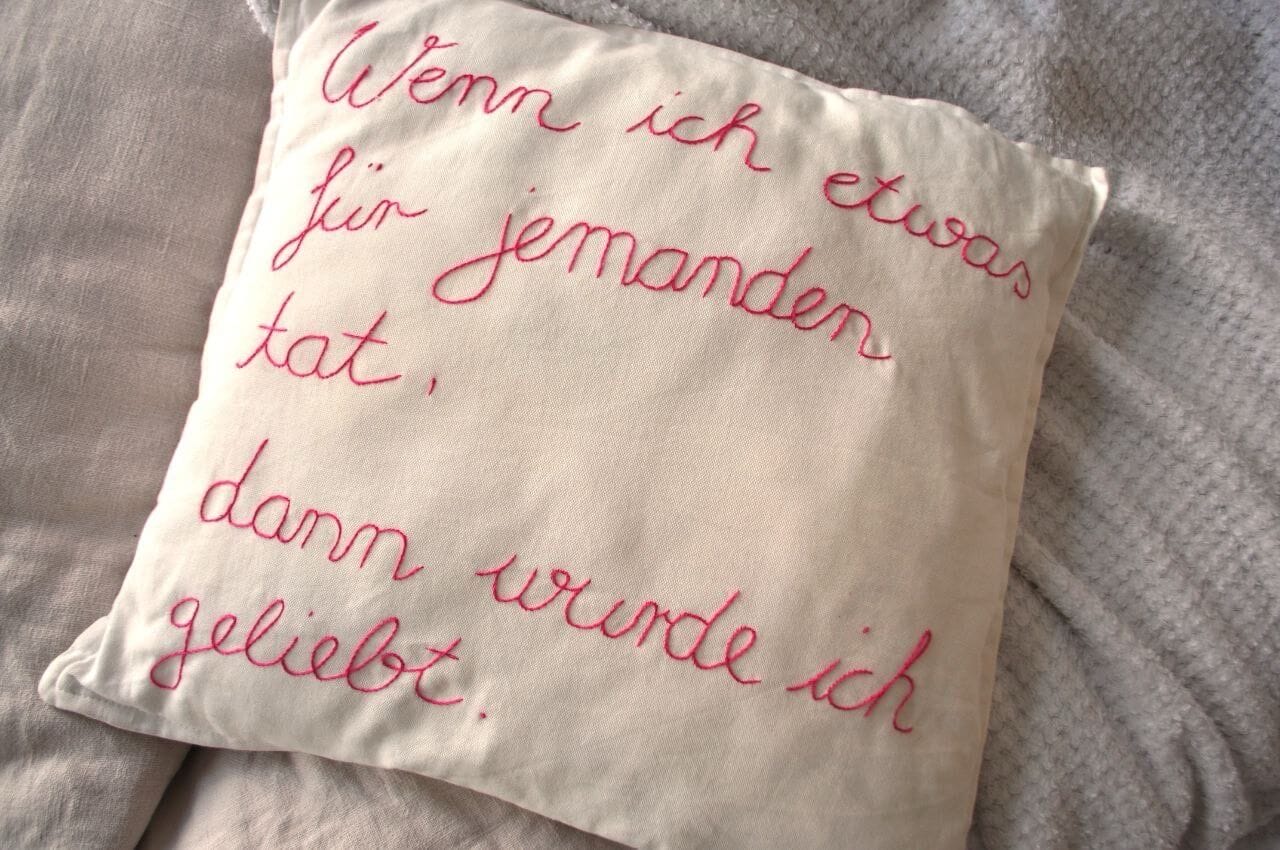 Wenn ich etwas
für jemanden
tat,
dann wurde ich
geliebt.